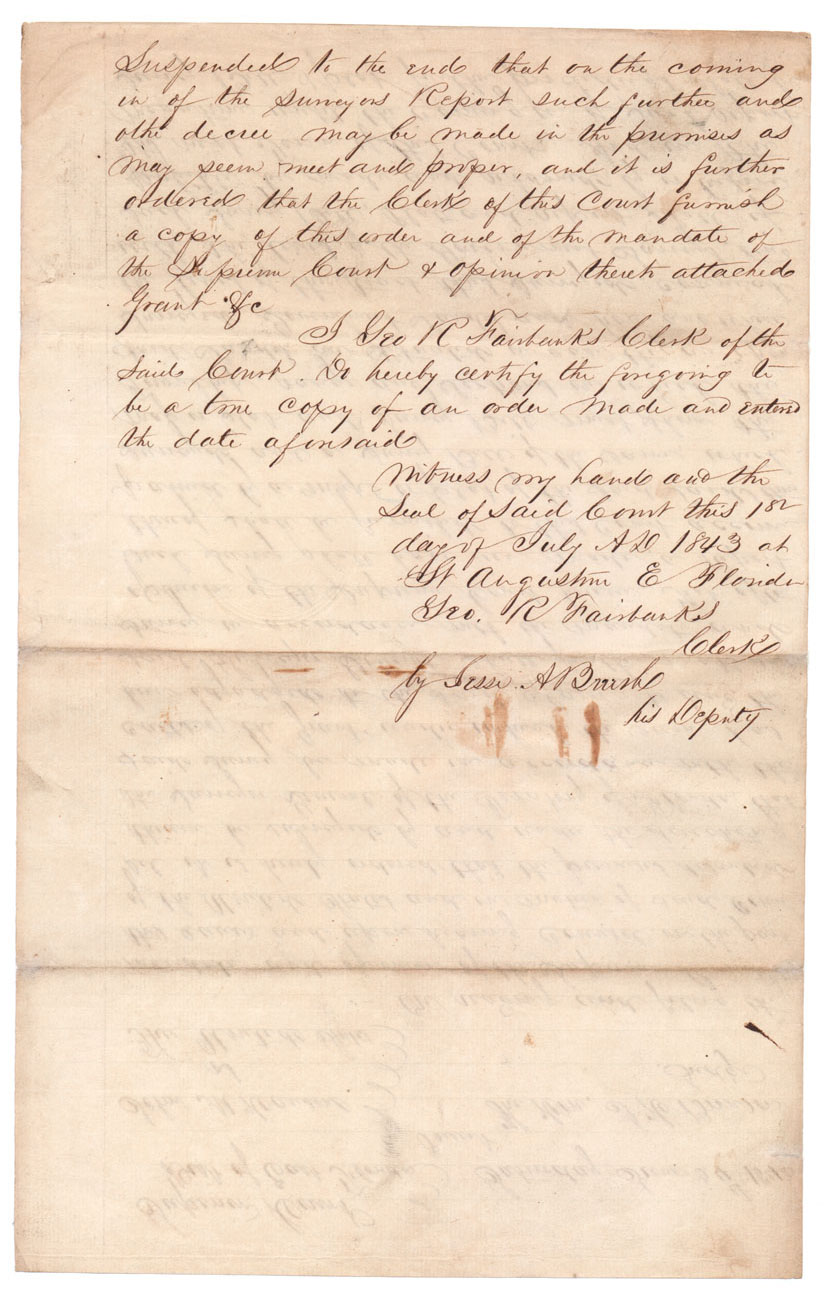 Suspended to the end that on the coming
in of the Surveyors Report such further and
othe decree may be made in the premises as
may seem meet and proper, and it is further
ordered that the Clerk of this Court furnish
a copy of this order and of the mandate of
the Supreme Court & opinion thereto attached
Grant &c
I Geo R Fairbanks Clerk of the
Said Court. Do hereby certify the foregoing to
be a true copy of an order made and entered
the date aforesaid
Witness my hand and the
Seal of Said Court this 1st
day of July AD 1843 at
St Augustine E Florida
Geo. R Fairbanks
Clerk
by Jesse A
his Deputy